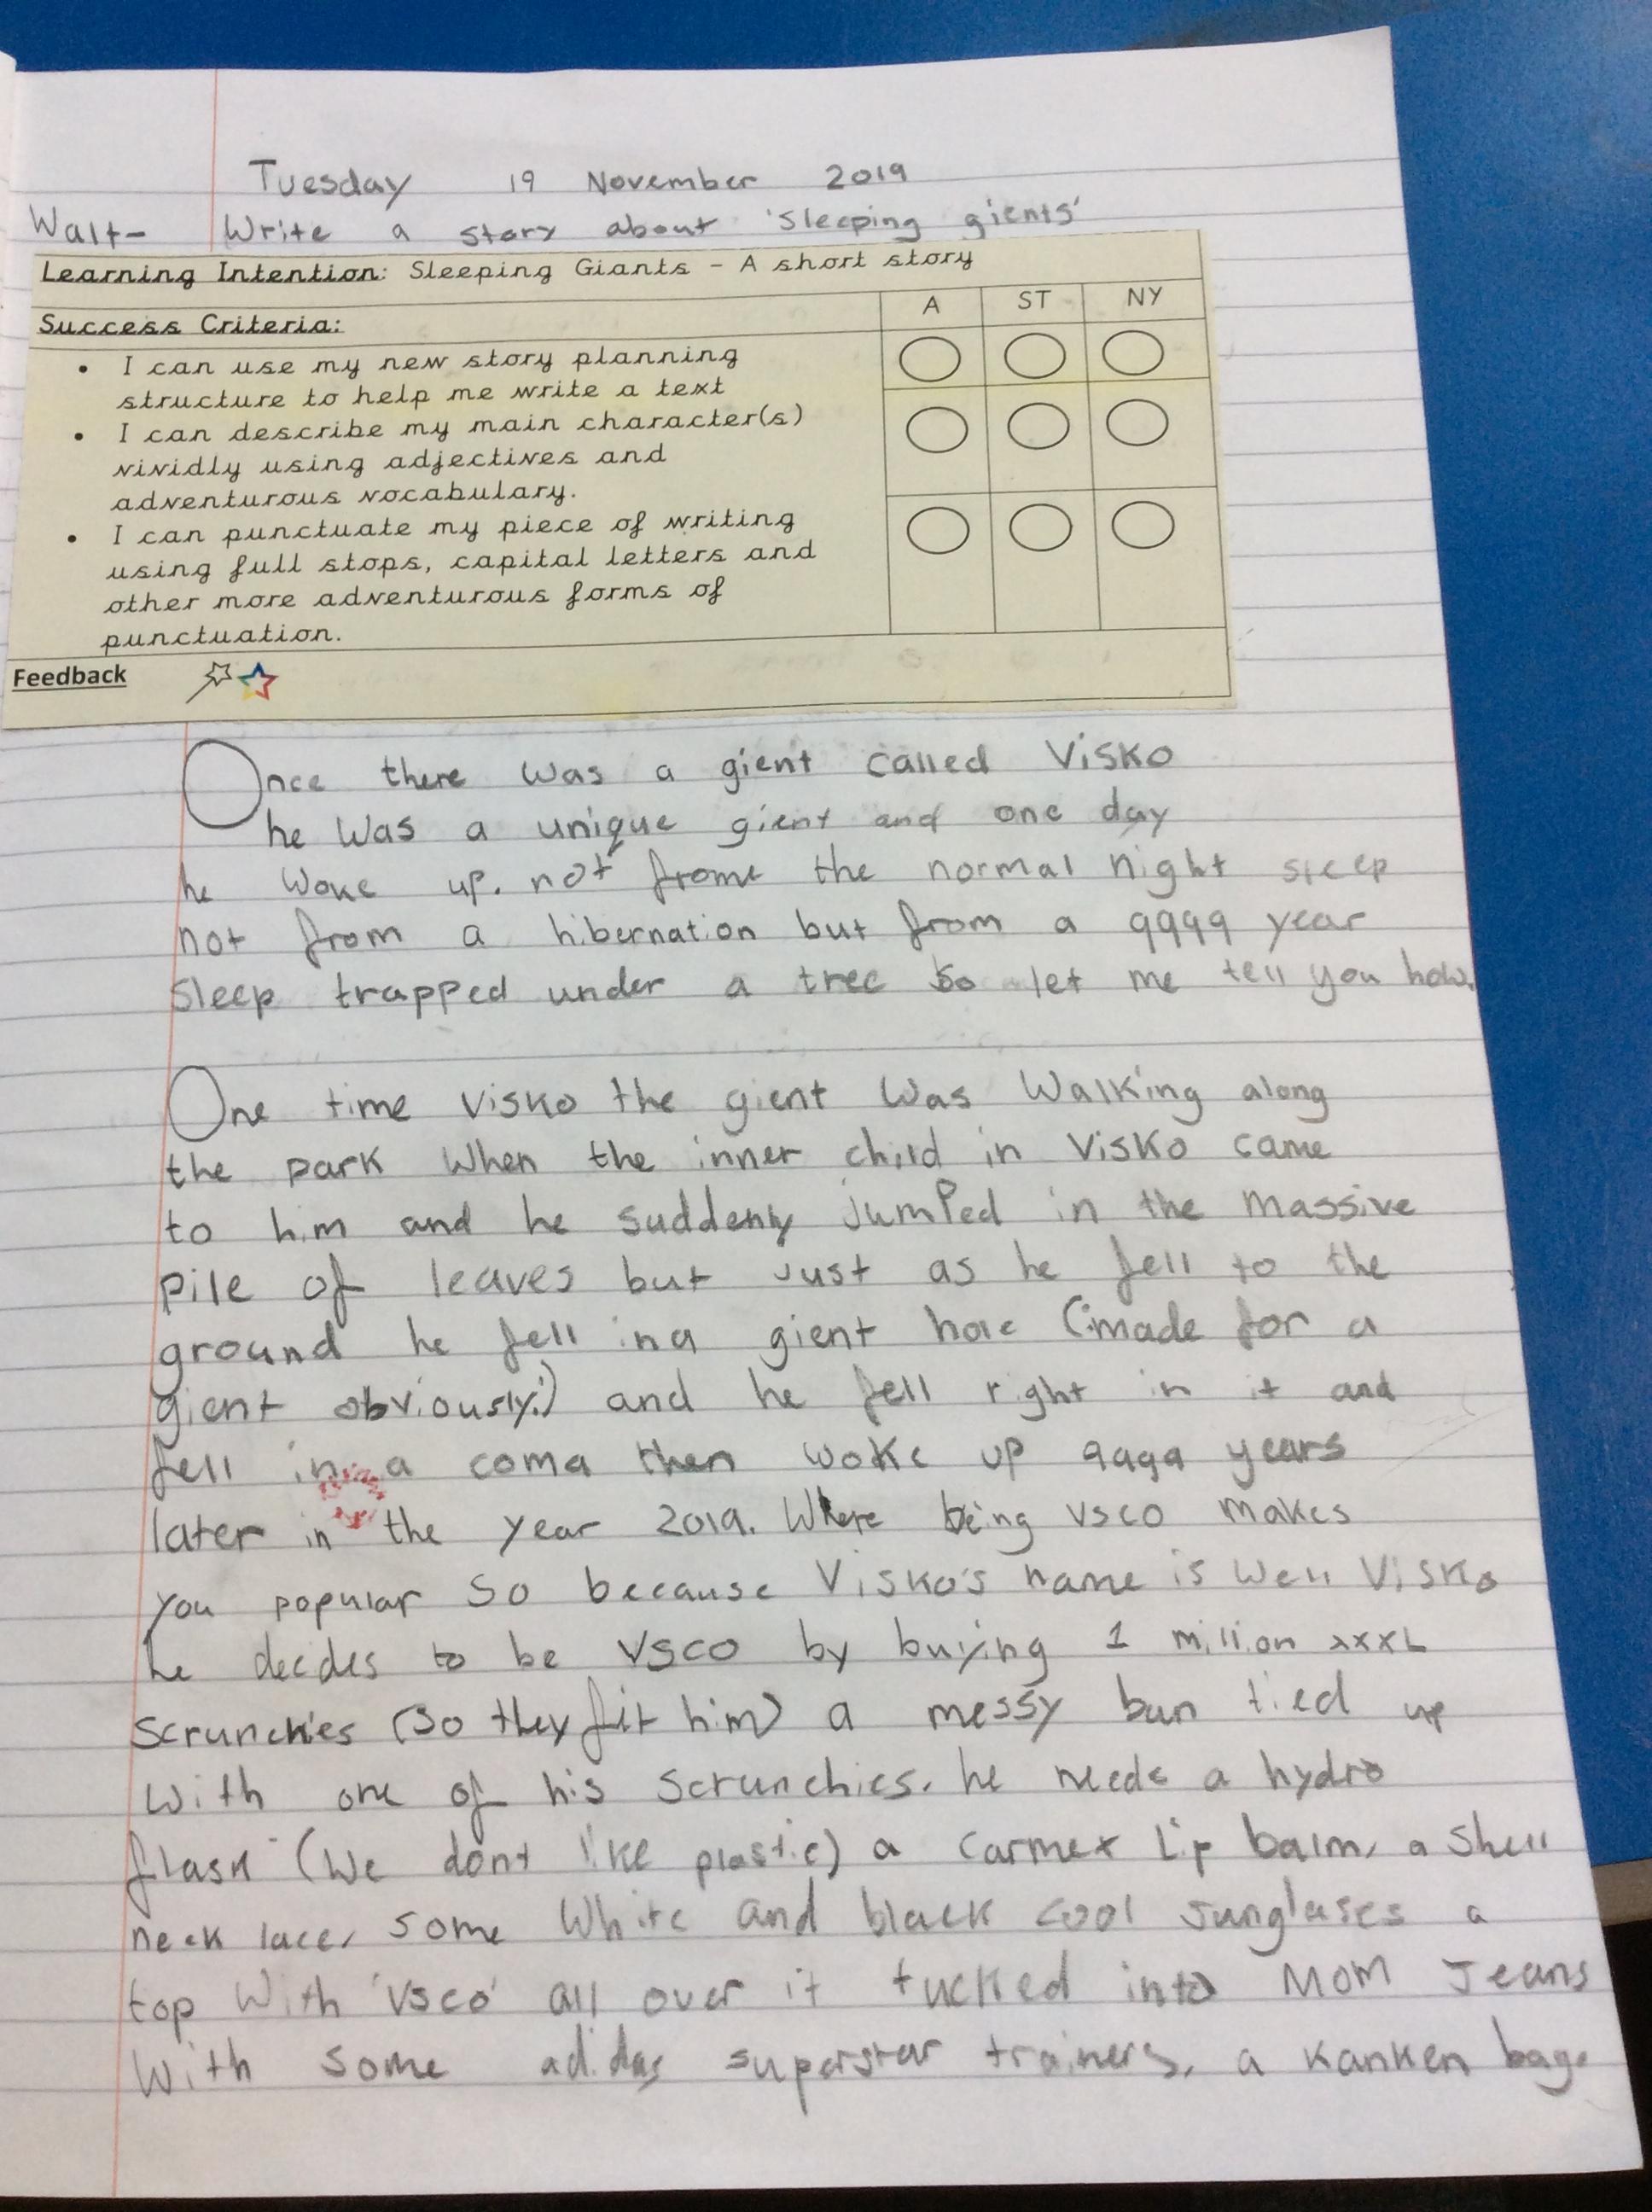 Tuesday 19 November 2019
Walt- Write a story about 'Sleeping gients'
Learning Intention: Sleeping Giants - A short story
A ST NY
Success Criteria:
• I can use my new story planning
structure to help me write a text
• I can describe my main character(s)
vividly using adjectives and
adventurous vocabulary.
• I can punctuate my piece of writing
using full stops, capital letters and
other more adventurous forms of
punctuation.
Feedback
Once there was a gient called Visko
he was a unique gient and one day
he woke up. not frome the normal night sleep
not from a hibernation but from a 9999 year
sleep trapped under a tree so let me tell you how.
One time Visko the gient was walking along
the park when the inner child in Visko came
to him and he suddenly jumped in the massive
pile of leaves but just as he fell to the
ground he fell in a gient hole (made for a
gient obviously!) and he fell right in it and
fell in a coma then woke up 9999 years
later in the year 2019. Where being vsco makes
you popular so because Visko's name is well Visko
he decides to be VSCO by buying 1 million xxxL
scrunchies (so they fit him) a messy bun tied up
with one of his scrunchies. he needs a hydro
flask (we dont like plastic) a carmex lip balm, a shell
neck lace, some white and black cool sunglases a
top with 'vsco' all over it tucked into Mom Jeans
with some adidas superstar trainers, a kanken bag.